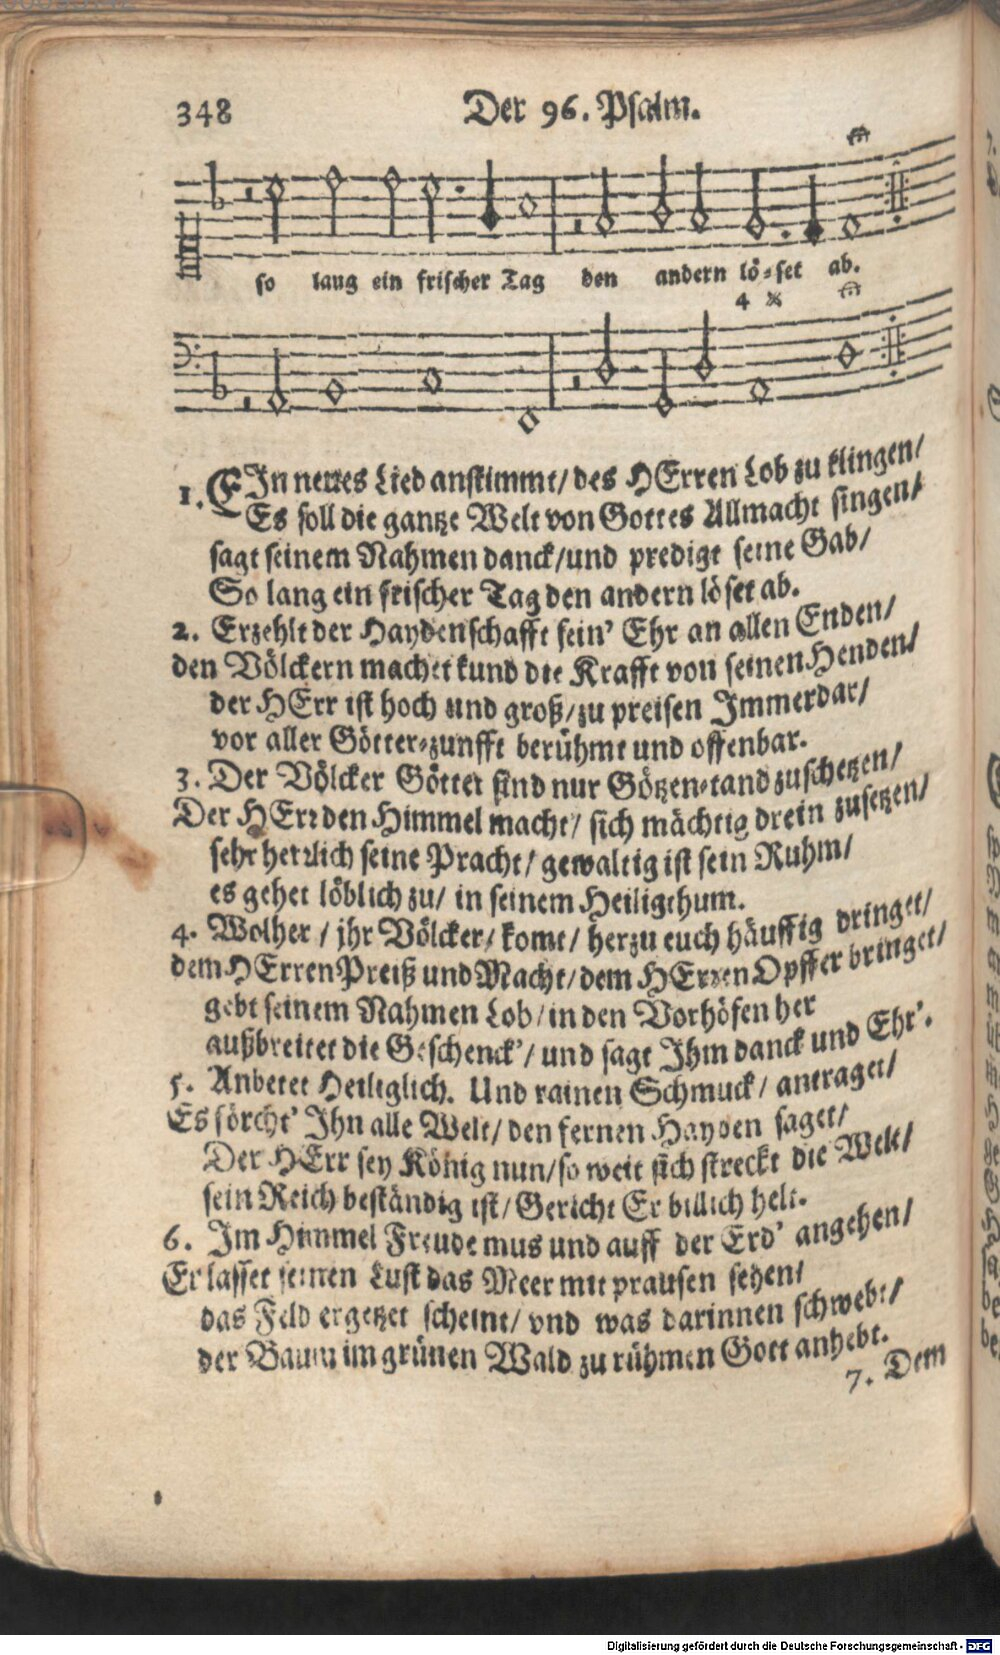 348
Der 96. Psalm.
so lang ein frischer Tag den andern lö-set ab.
4 x
1. EIn neues Lied anstimmt/ des HErren Lob zu klingen/
Es soll die gantze Welt von Gottes Allmacht singen/
sagt seinem Nahmen danck/ und predigt seine Gab/
So lang ein frischer Tag den andern löset ab.
2. Erzehlt der Haydenschafft sein' Ehr an allen Enden/
den Völckern machet kund die Krafft von seinen Henden/
der HErr ist hoch und groß/ zu preisen Immerdar/
vor aller Götter-zunfft berühmt und offenbar.
3. Der Völcker Götter sind nur Götzen-tand zuschetzen/
Der HErr den Himmel macht/ sich mächtig drein zusetzen/
sehr herrlich seine Pracht/ gewaltig ist sein Ruhm/
es gehet löblich zu/ in seinem Heiligthum.
4. Wolher/ jhr Völcker/ komt/ herzu euch häuffig dringet/
dem HErren Preiß und Macht/ dem HErren Opffer bringet/
gebt seinem Nahmen Lob/ in den Vorhöfen her
außbreitet die Geschenck'/ und sagt Ihm danck und Ehr'.
5. Anbetet Heiliglich. Und rainen Schmuck/ antraget/
Es förcht' Ihn alle Welt/ den fernen Hayden saget/
Der HErr sey König nun/ so weit sich streckt die Welt/
sein Reich beständig ist/ Gericht Er billich helt.
6. Im Himmel Freude mus und auff der Erd' angehen/
Er lasset seinen Lust das Meer mit prausen sehen/
das Feld ergetzet scheint/ vnd was darinnen schwebt/
der Baum im grünen Wald zu rühmen Gott anhebt.
7. Dem
Digitalisierung gefördert durch die Deutsche Forschungsgemeinschaft - DFG